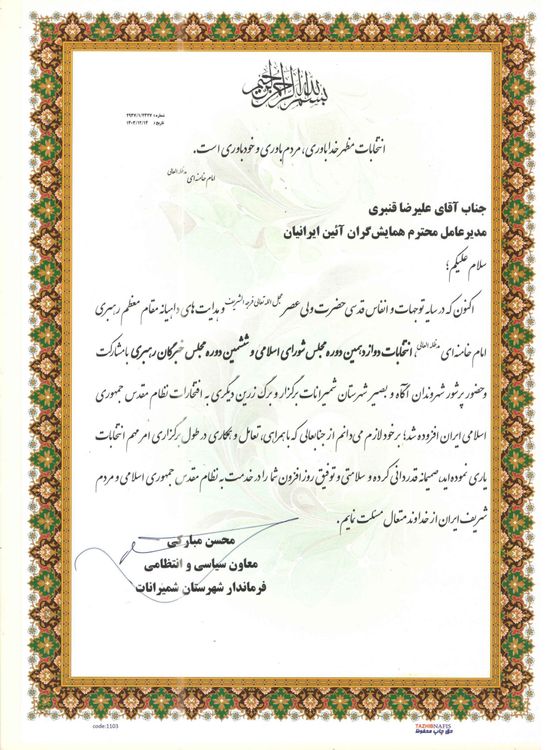 بسم الله الرحمن الرحیم
شماره: ۲۹۳۷/۱/۲۴۲۷
تاریخ: ۱۴۰۲/۱۲/۱۴
انتخابات مظهر خداباوری، مردم باوری و خودباوری است.
امام خامنه‌ای مدظله العالی
جناب آقای علیرضا قنبری
مدیرعامل محترم همایش‌گران آئین ایرانیان
سلام علیکم؛
اکنون که در سایه توجهات و انفاس قدسی حضرت ولی عصر عجل الله تعالی فرجه الشریف و هدایت‌های داهیانه مقام معظم رهبری
امام خامنه‌ای مدظله العالی، انتخابات دوازدهمین دوره مجلس شورای اسلامی و ششمین دوره مجلس خبرگان رهبری با مشارکت
و حضور پرشور شهروندان آگاه و بصیر شهرستان شمیرانات برگزار و برگ زرین دیگری به افتخارات نظام مقدس جمهوری
اسلامی ایران افزوده شد؛ برخود لازم می‌دانم از جنابعالی که با همراهی، تعامل و همکاری در طول برگزاری امر مهم انتخابات
یاری نموده‌اید، صمیمانه قدردانی کرده و سلامتی و توفیق روزافزون شما را در خدمت به نظام مقدس جمهوری اسلامی و مردم
شریف ایران از خداوند متعال مسئلت نمایم.
محسن مبارکی
معاون سیاسی و انتظامی
فرماندار شهرستان شمیرانات
code:1103
TAZHIBNAFIS
حق چاپ محفوظ